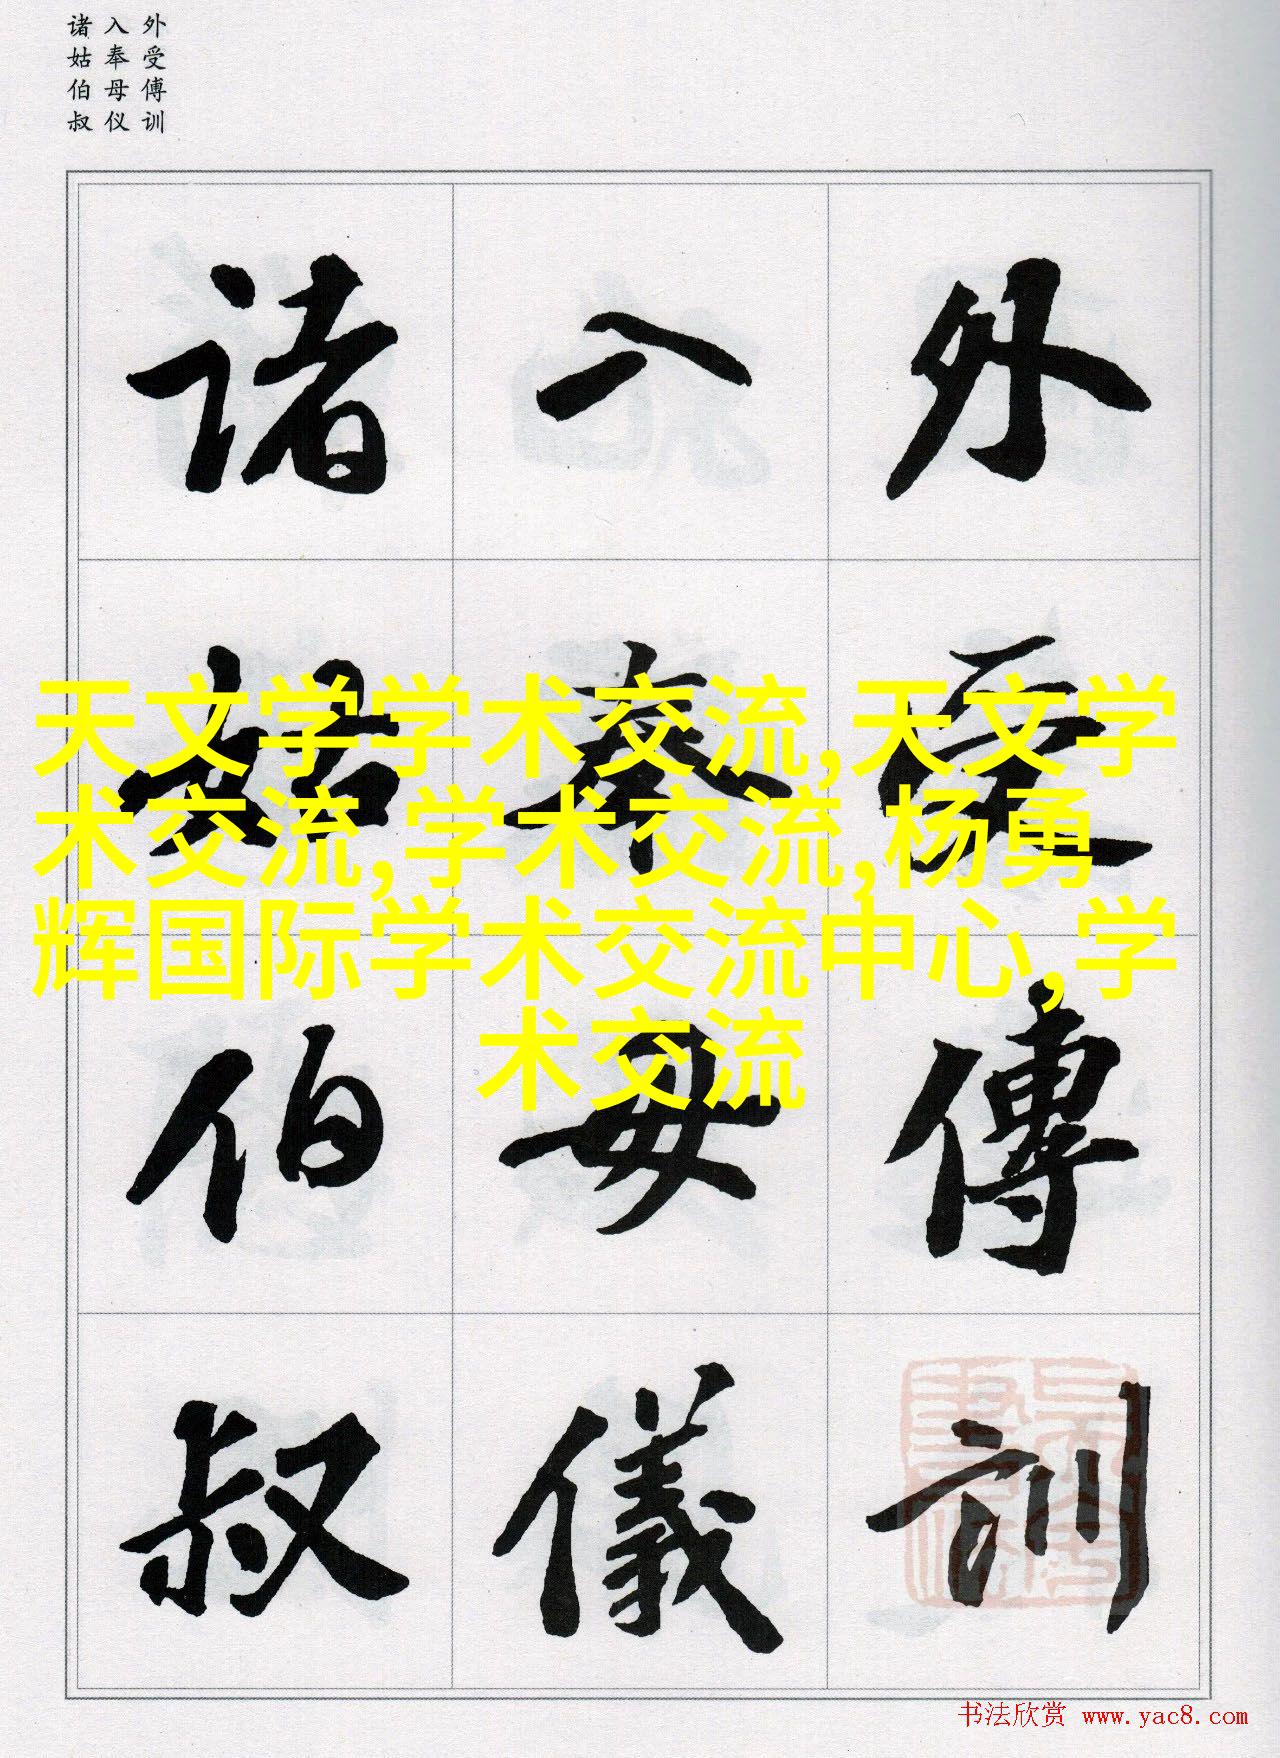 外受傅训
入奉母仪
诸姑伯叔
外受傅訓
入奉母儀
诸姑伯叔
天文学学术交流,天文学
术交流,学术交流,杨勇
辉国际学术交流中心,学
术交流
书法欣赏 www.yac8.com